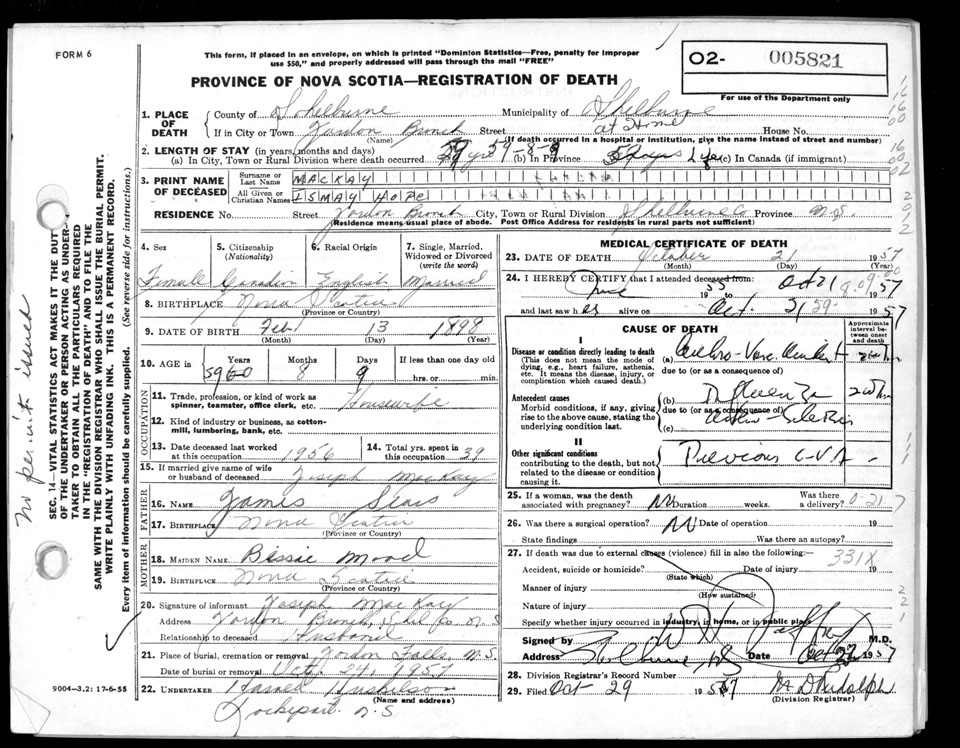 FORM 6
This form, if placed in an envelope, on which is printed "Dominion Statistics—Free, penalty for improper
use $50," and properly addressed will pass through the mail "FREE"
PROVINCE OF NOVA SCOTIA—REGISTRATION OF DEATH
O2- 005821
For use of the Department only
1. PLACE OF DEATH
County of Shelburne Municipality of Shelburne
If in City or Town Jordon Branch Street at Home House No.
(Name) (If death occurred in a hospital or institution, give the name instead of street and number)
2. LENGTH OF STAY (in years, months and days)
(a) In City, Town or Rural Division where death occurred 59-8-9 (b) In Province Life (c) In Canada (if immigrant)
3. PRINT NAME OF DECEASED
Surname or Last Name MACKAY
All Given or Christian Names ISMAY HOPE
RESIDENCE No. Street Jordon Branch City, Town or Rural Division Shelburne Co Province N.S.
(Residence means usual place of abode. Post Office Address for residents in rural parts not sufficient)
4. Sex 5. Citizenship (Nationality) 6. Racial Origin 7. Single, Married, Widowed or Divorced (write the word)
Female Canadian English Married
8. BIRTHPLACE Nova Scotia
(Province or Country)
9. DATE OF BIRTH Feb 13 1898
(Month) (Day) (Year)
10. AGE in Years Months Days If less than one day old
59 60 8 9 hrs. or min.
OCCUPATION
11. Trade, profession, or kind of work as
spinner, teamster, office clerk, etc. Housewife
12. Kind of industry or business, as cotton-
mill, lumbering, bank, etc.
13. Date deceased last worked at this occupation 1956 14. Total yrs. spent in this occupation 39
15. If married give name of wife
or husband of deceased Joseph MacKay
FATHER
16. NAME James Sears
17. BIRTHPLACE Nova Scotia
(Province or Country)
MOTHER
18. MAIDEN NAME Bessie Mood
19. BIRTHPLACE Nova Scotia
(Province or Country)
20. Signature of informant Joseph MacKay
Address Jordon Branch, Shel Co. N.S
Relationship to deceased Husband
21. Place of burial, cremation or removal Jordon Falls, N.S.
Date of burial or removal Oct. 24, 1957
22. UNDERTAKER
(Name and address)
Lockeport N.S
9004—3.2: 17-6-55
MEDICAL CERTIFICATE OF DEATH
23. DATE OF DEATH October 21 1957
(Month) (Day) (Year)
24. I HEREBY CERTIFY that I attended deceased from
June 1955 to Oct 21 1957
and last saw her alive on Oct. 21 1957
CAUSE OF DEATH
Approximate interval between onset and death
I
Disease or condition directly leading to death
(This does not mean the mode of
dying, e.g., heart failure, asthenia,
etc. It means the disease, injury, or
complication which caused death.)
(a)
due to (or as a consequence of)
Antecedent causes
Morbid conditions, if any, giving
rise to the above cause, stating the
underlying condition last.
(b)
due to (or as a consequence of)
(c)
II
Other significant conditions
contributing to the death, but not
related to the disease or condition
causing it.
Previous C-V-A -
25. If a woman, was the death
associated with pregnancy? No Duration weeks. Was there a delivery?
26. Was there a surgical operation? No Date of operation 19
State findings Was there an autopsy?
27. If death was due to external causes (violence) fill in also the following:—
331X
Accident, suicide or homicide? Date of injury 19
(State which)
Manner of injury
(How sustained)
Nature of injury
Specify whether injury occurred in industry, in home, or in public place
Signed by M.D.
Address Shelburne NS Date Oct 22 1957
28. Division Registrar's Record Number
29. Filed Oct 29 1957 M D Rudolph
(Division Registrar)
No permit issued
SEC. 14—VITAL STATISTICS ACT MAKES IT THE DUTY
OF THE UNDERTAKER OR PERSON ACTING AS UNDER-
TAKER TO OBTAIN ALL THE PARTICULARS REQUIRED
IN THE "REGISTRATION OF DEATH" AND FILE THE
SAME WITH THE DIVISION REGISTRAR WHO SHALL ISSUE THE BURIAL PERMIT.
WRITE PLAINLY WITH UNFADING INK. THIS IS A PERMANENT RECORD.
Every item of information should be carefully supplied. (See reverse side for instructions.)